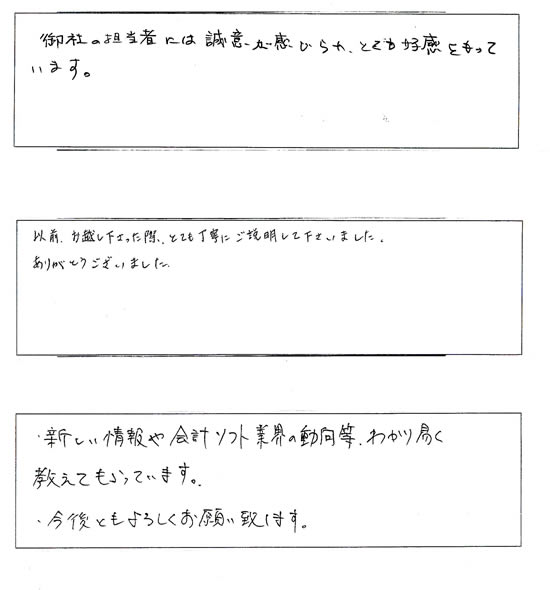 御社の担当者には誠意が感じられ、とても好感をもって
います。
以前、お越し下さった際、とても丁寧にご説明して下さいました。
ありがとうございました。
・新しい情報や会計ソフト業界の動向等、わかり易く
教えてもらっています。
・今後ともよろしくお願い致します。